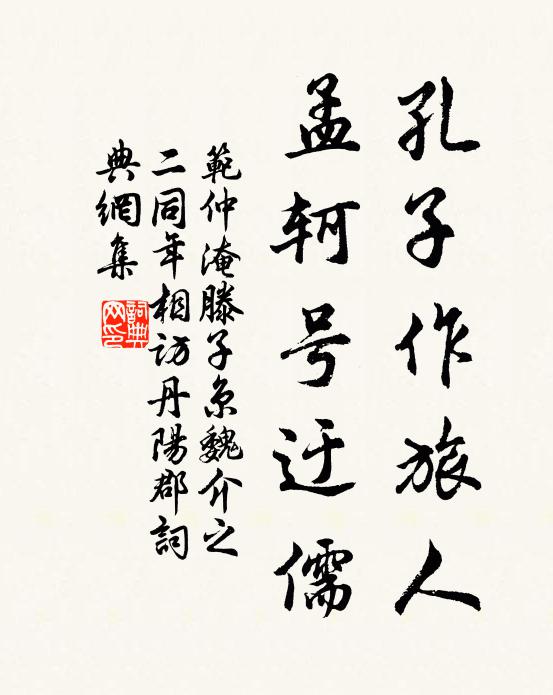 孔子作旅人
孟轲号迂儒
範仲淹滕子京魏介之
二同年相访丹陽郡詞
典網集
詞典網印